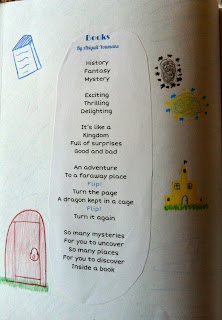 Books
By Abigail Yosmans
History
Fantasy
Mystery
Exciting
Thrilling
Delighting
It's like a
Kingdom
Full of surprises
Good and bad
An adventure
To a faraway place
Flip!
Turn the page
A dragon kept in a cage
Flip!
Turn it again
So many mysteries
For you to uncover
So many places
For you to discover
Inside a book